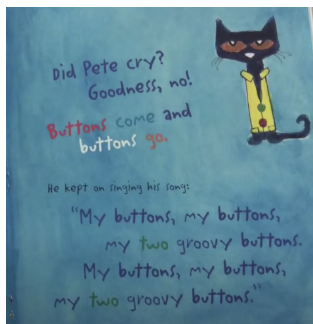 Did Pete cry?
Goodness, no!
Buttons come and
buttons go.
He kept on singing his song:
"My buttons, my buttons,
my two groovy buttons.
My buttons, my buttons,
my two groovy buttons."